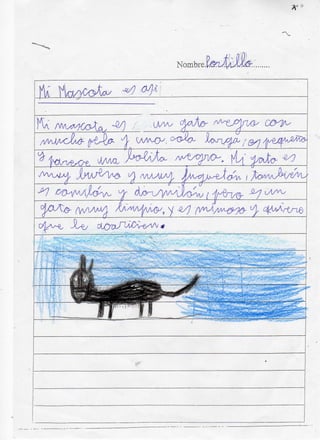 Nombre Portillo
Mi Mascota es así
Mi mascota es un gato negro con
mucho pelo y una cola larga, es pequeño
y parece una bolita negra. Mi gato es
muy bueno y muy juguetón, también
es comilón y dormilón, pero es un
gato muy limpio, y es mimoso y quiere
que le acaricien.